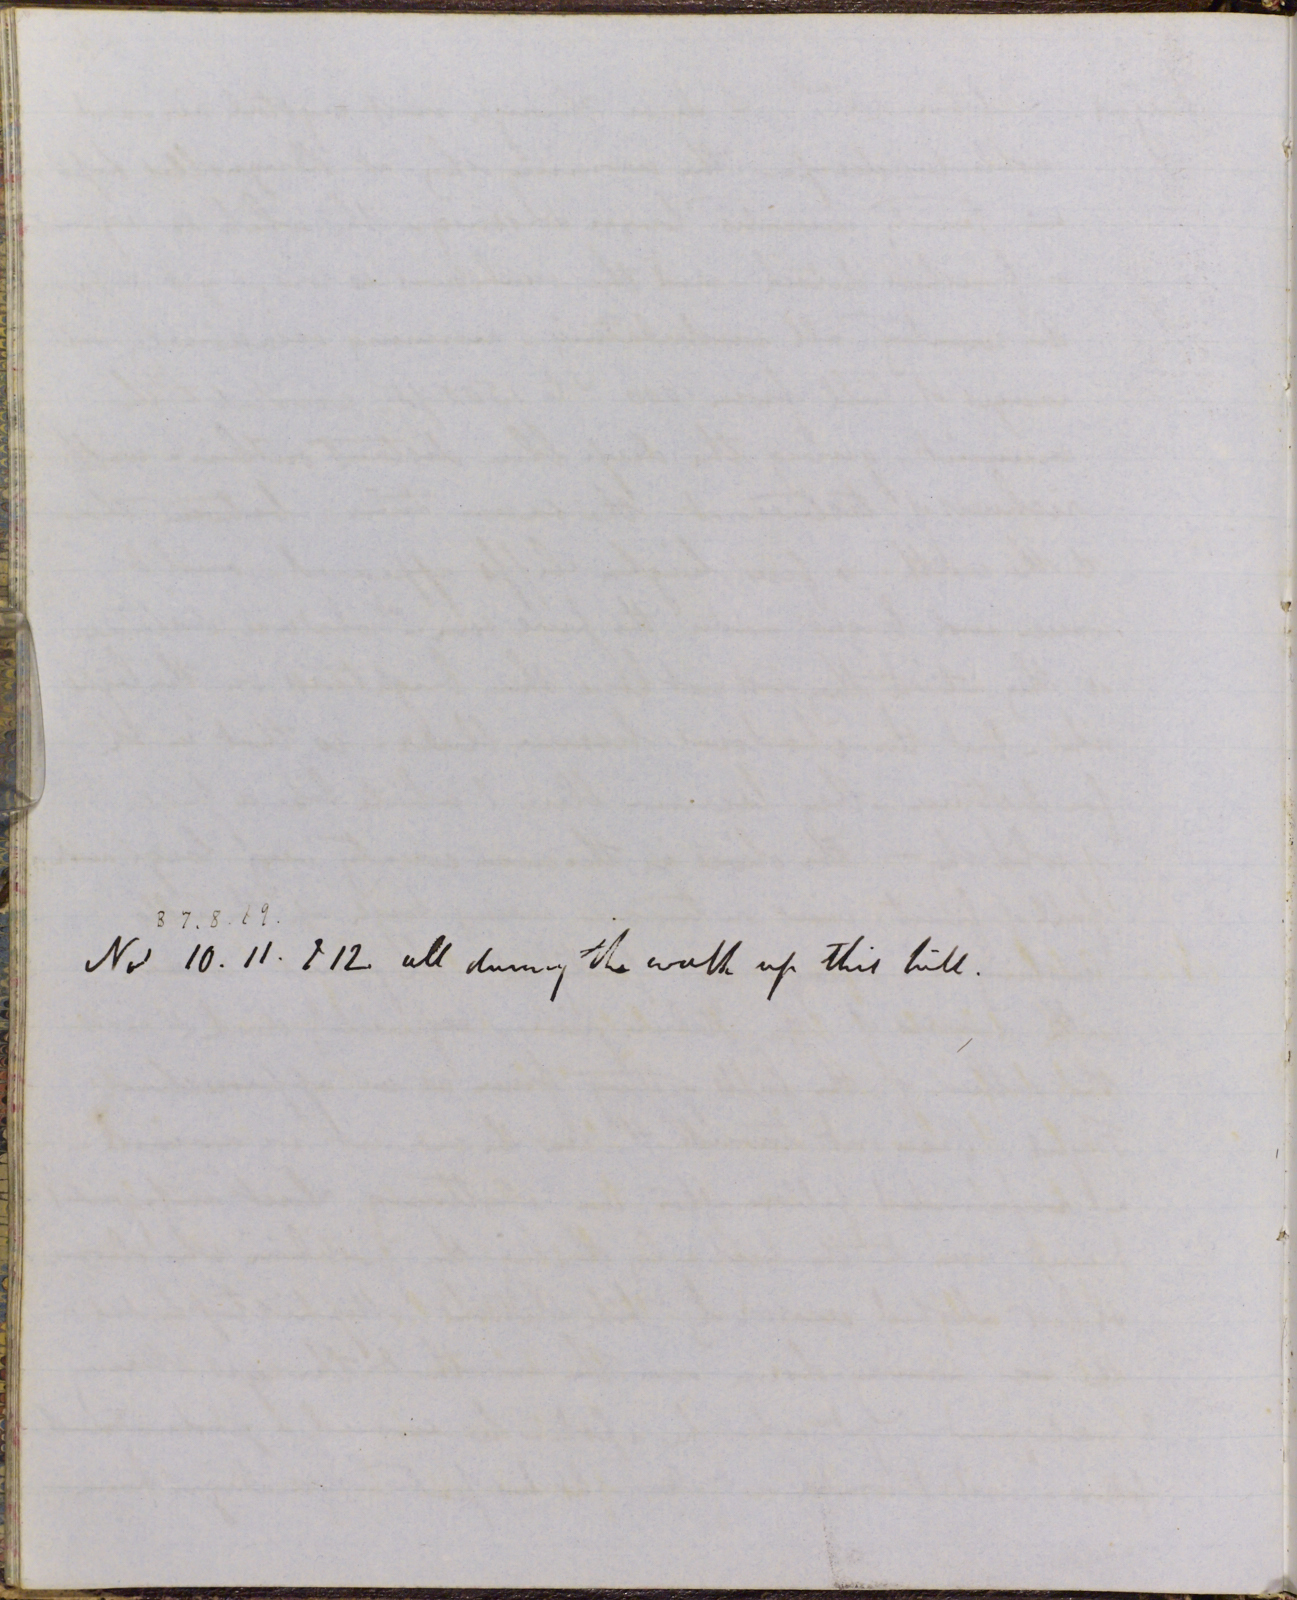 3 7. 8. & 9.
Nos 10. 11. & 12. all during the walk up this hill.